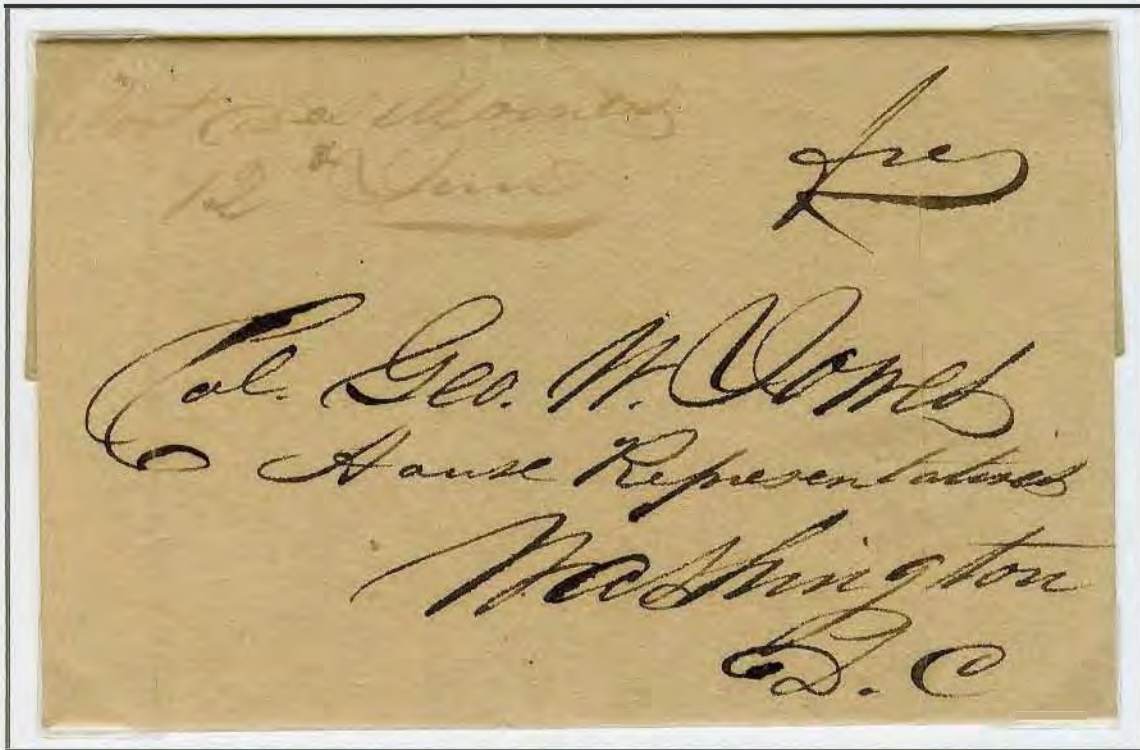 12th June
Free
Col. Geo. W. Jones
House Representatives
Washington
D. C